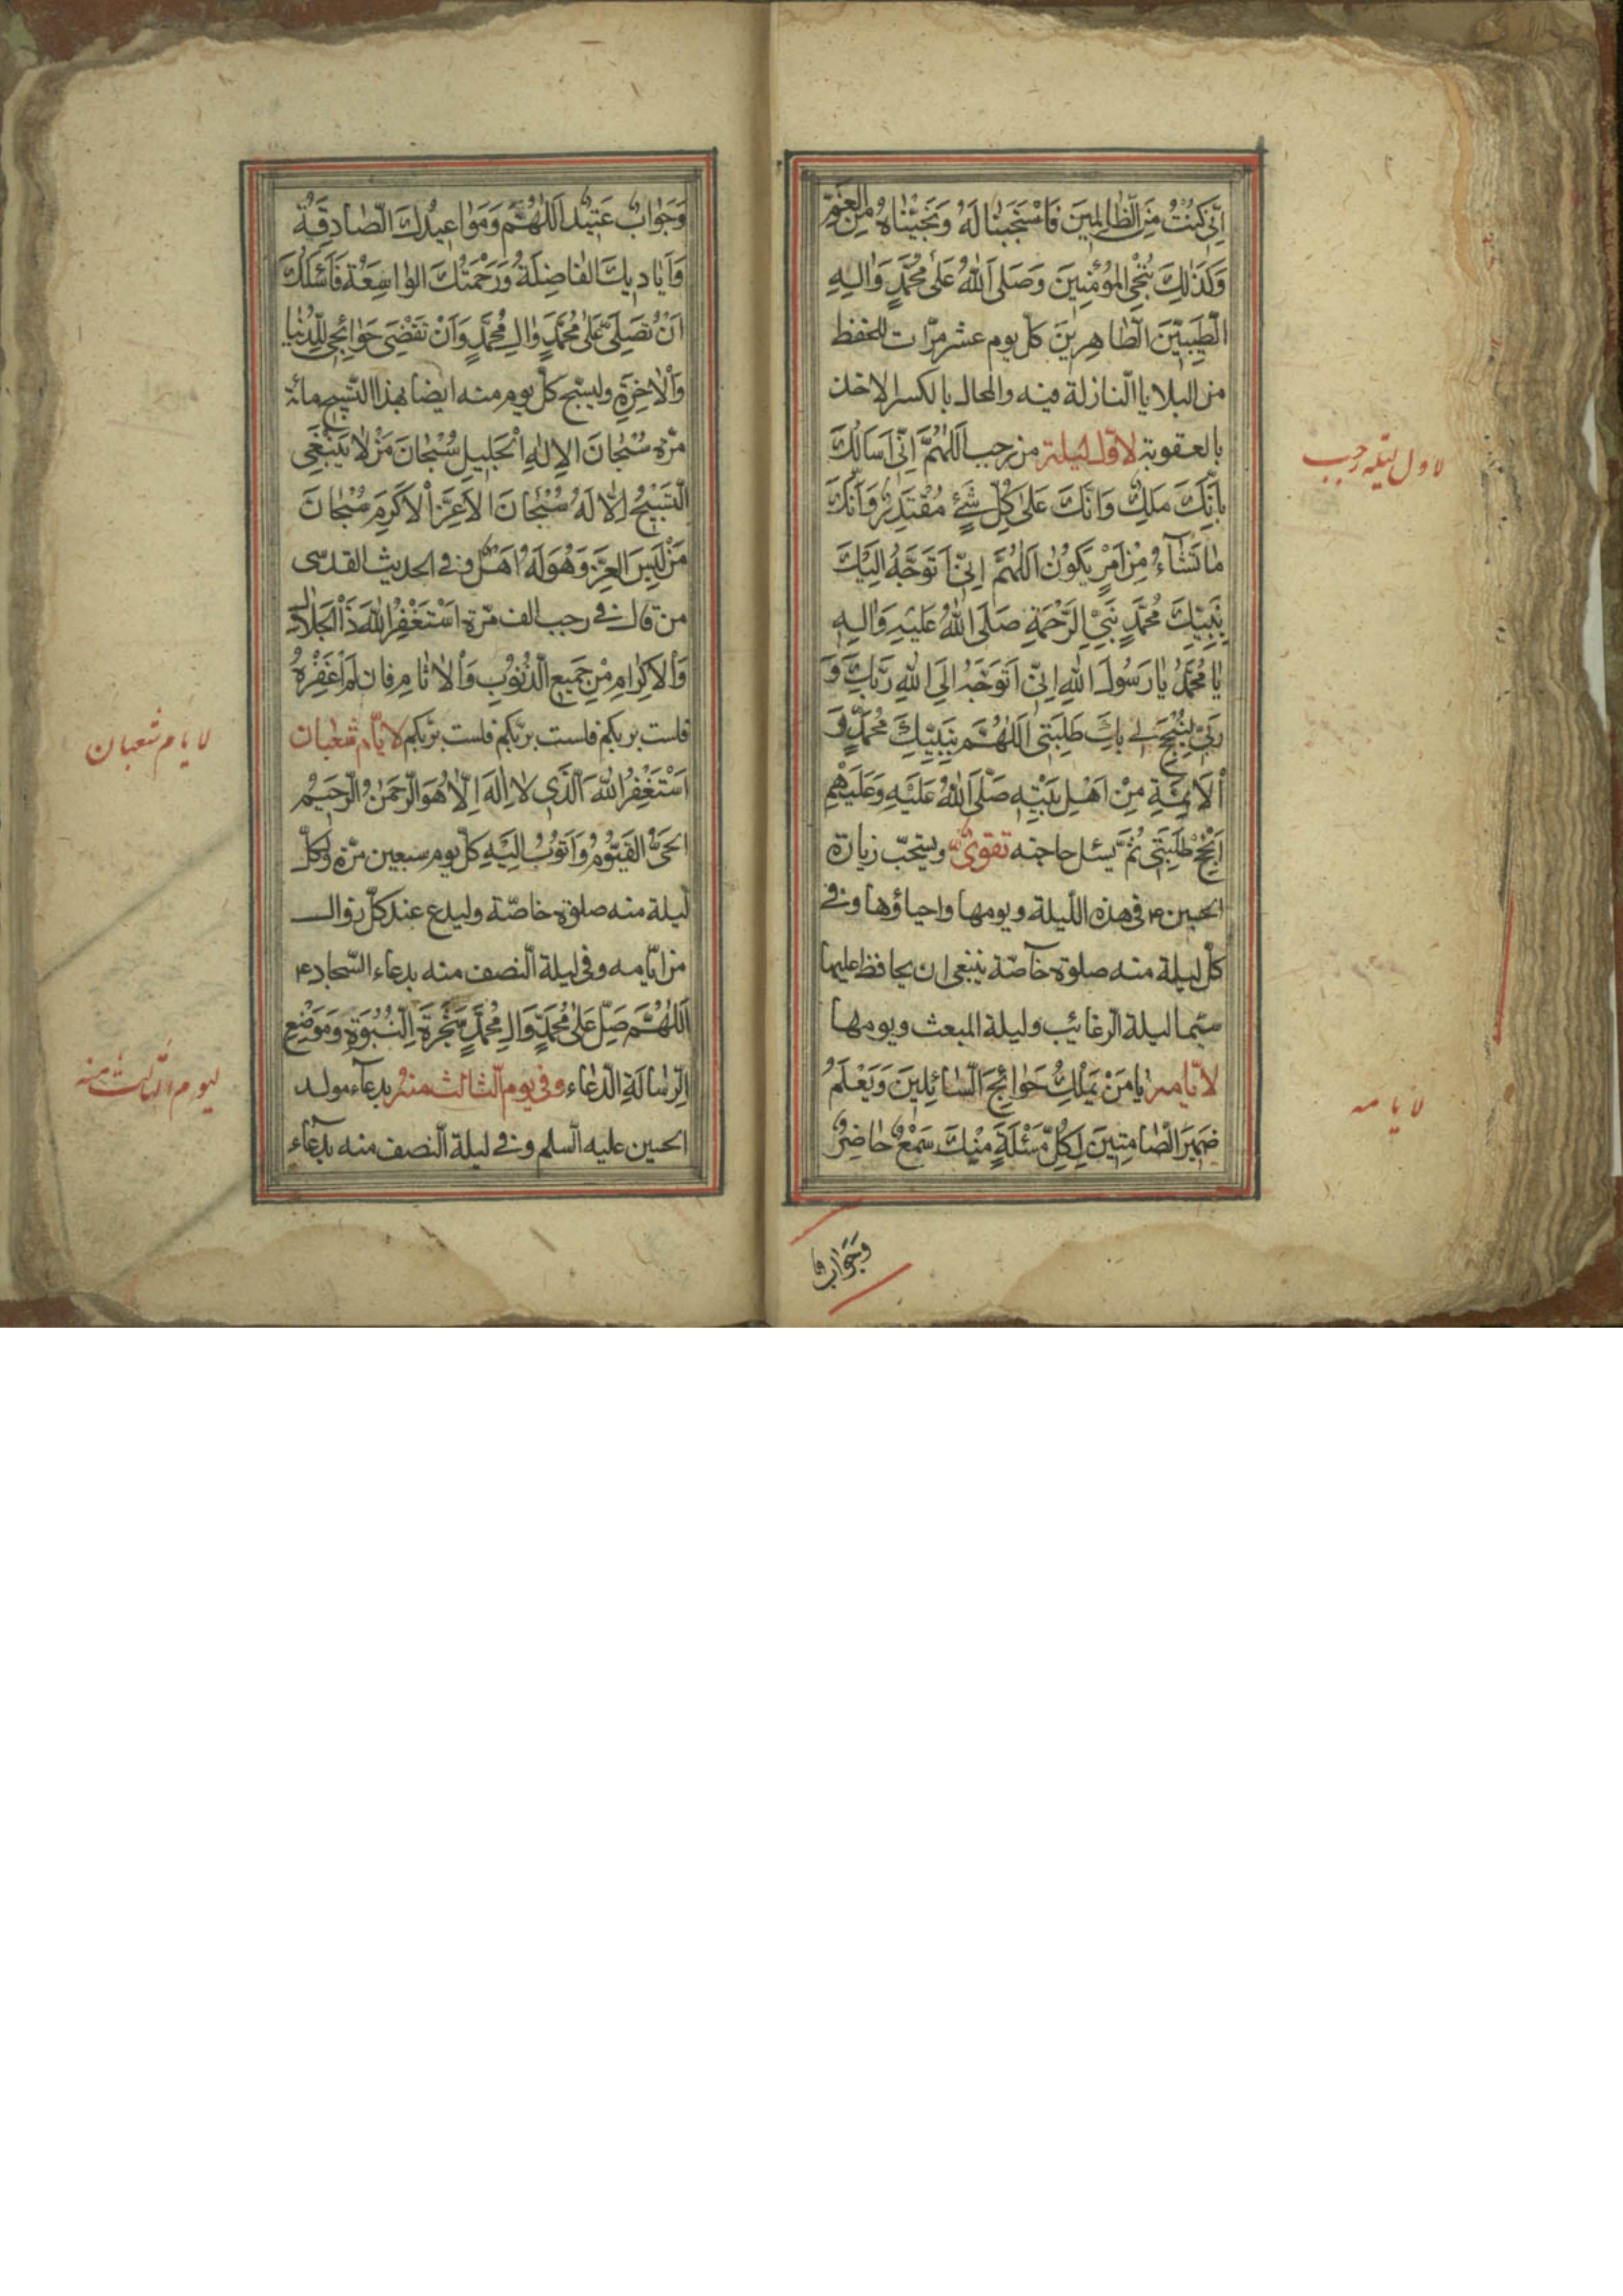 اِنّى كُنْتُ مِنَ الظّالِمينَ فَاسْتَجَبْنا لَهُ وَنَجَّيْناهُ مِنَ الْغَمِّ
وَكَذلِكَ نُنْجِى الْمُؤْمِنينَ وَصَلَى اَللّهُ عَلى مُحَمَّدٍ وَالِهِ
الطَّيِّبينَ الطّاهِرينَ كلّ يوم عشر مرّات للحفظ
من البلايا النازلة فيه والمحال بالكسر الاخذ
بالعقوبة لاوّل ليلة من رجب اَللّهُمَّ اِنّى اَسَالُكَ
بِاَنَّكَ مَلِكٌ وَاَنَّكَ عَلى كُلِّ شَئٍ مُقْتَدِرٌ وَاَنَّكَ
ما تَشآءُ مِنْ اَمْرٍ يَكُونُ اَللّهُمَّ اِنّى اَتَوَجَّهُ اِلَيْكَ
بِنَبِيِّكَ مُحَمَّدٍ نَبِىِّ الرَّحْمَةِ صَلَى اللّهُ عَلَيْهِ وَالِهِ
يا مُحَمَّدُ يا رَسُولَ اللّهِ اِنّى اَتَوَجَّهُ اِلَى اللّهِ رَبِّكَ وَ
رَبّى لِيُنْجِحَ لى بِكَ طَلِبَتى اَللّهُمَّ بِنَبِيِّكَ مُحَمَّدٍ وَ
الْاَئِمَّةِ مِنْ اَهْلِ بَيْتِهِ صَلَّى اللّهُ عَلَيْهِ وَعَلَيْهِمْ
اَنْجِحْ طَلِبَتى ثُمَّ يسئل حاجته تقوىٌ ويستحبّ زيارة
الحسين ع فى هذه اللّيلة ويومها واحياؤها وفى
كلّ ليلة منه صلوة خآصّة ينبغى ان يحافظ عليها
سيّما ليلة الرغائب وليلة المبعث ويومها
لايّامه يا مَنْ يَمْلِكُ حَوائِجَ السّائِلينَ وَيَعْلَمُ
ضَميرَ الصّامِتينَ لِكُلِّ مَسْئَلَةٍ مِنْكَ سَمْعٌ حاضِرٌ
وَجَوابٌ
لاول ليله رجب
لايامه
وَجَوابٌ عَتيدٌ اَللّهُمَّ وَمَواعيدُكَ الصّادِقَةُ
وَاَياديكَ الفاضِلَةُ وَرَحْمَتُكَ الواسِعَةُ فَاَسْئَلُكَ
اَنْ تُصَلِّىَ عَلى مُحَمَّدٍ وَالِ مُحَمَّدٍ وَاَنْ تَقْضِىَ حَوائِجى لِلدُّنيا
وَالْاخِرَةِ وليسبّح كلّ يوم منه ايضا بهذا التّسبيح مائة
مرّة سُبْحانَ الاِلهِ الْجَليلِ سُبْحانَ مَنْ لا يَنْبَغى
التَّسْبيحُ اِلّا لَهُ سُبْحانَ الاَعَزِّ الْاَكْرَمِ سُبْحانَ
مَنْ لَبِسَ العِزَّ وَهُوَ لَهُ اَهْلٌ وفى الحديث القدسى
من قال فى رجب الف مرّة اَسْتَغْفِرُ اللّهَ ذَا الْجَلالِ
وَالْاِكْرامِ مِنْ جَميعِ الذُّنُوبِ وَالْاثامِ فان لم اغفر له
فلست بربّكم فلست بربّكم فلست بربّكم لايّام شعبان
اَسْتَغْفِرُ اللّهَ الَّذى لا اِلهَ اِلّا هُوَ الرَّحْمنُ الرَّحيمُ
الحَىُّ القَيُّومُ وَاَتُوبُ اِلَيْهِ كلّ يوم سبعين مرّة ولكلّ
ليلة منه صلوة خاصّة وليدع عند كلّ زوال
من ايّامه وفى ليلة النّصف منه بدعاء السّجاد ع
اَللّهُمَّ صَلِّ عَلى مُحَمَّدٍ وَالِ مُحَمَّدٍ شَجَرَةِ النُّبُوَةِ وَمَوْضِعِ
الرِّسالَةِ الدّعاء وفى يوم الثّالث منه بدعآء مولد
الحسين عليه السّلم وفى ليلة النّصف منه بدعآء
لايام شعبان
ليوم الثالث منه